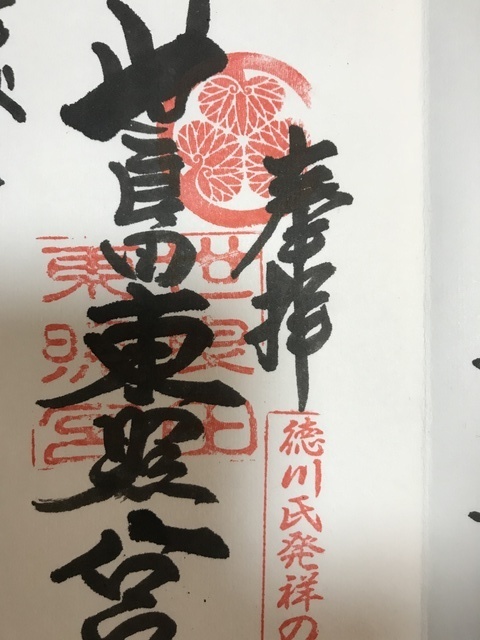 奉拝
徳川氏発祥の
世良田東照宮
世良田
東照宮